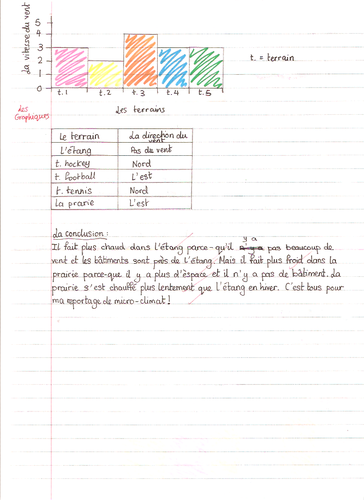 La vitesse du vent
5
4
3
2
1
0
t.1 t.2 t.3 t.4 t.5
t. = terrain
Les Graphiques
Les terrains
Le terrain La direction du vent
L'étang Pas de vent
t. hockey Nord
t. football L'est
t. tennis Nord
la prarie L'est
La conclusion:
Il fait plus chaud dans l'étang parce-qu'il y a pas beaucoup de
vent et les bâtiments sont près de l'étang. Mais il fait plus froid dans la
prairie parce-que il y a plus d'éspace et il n'y a pas de bâtiment. La
prairie s'est chauffé plus lentement que l'étang en hiver. C'est tous pour
ma reportage de micro-climat!